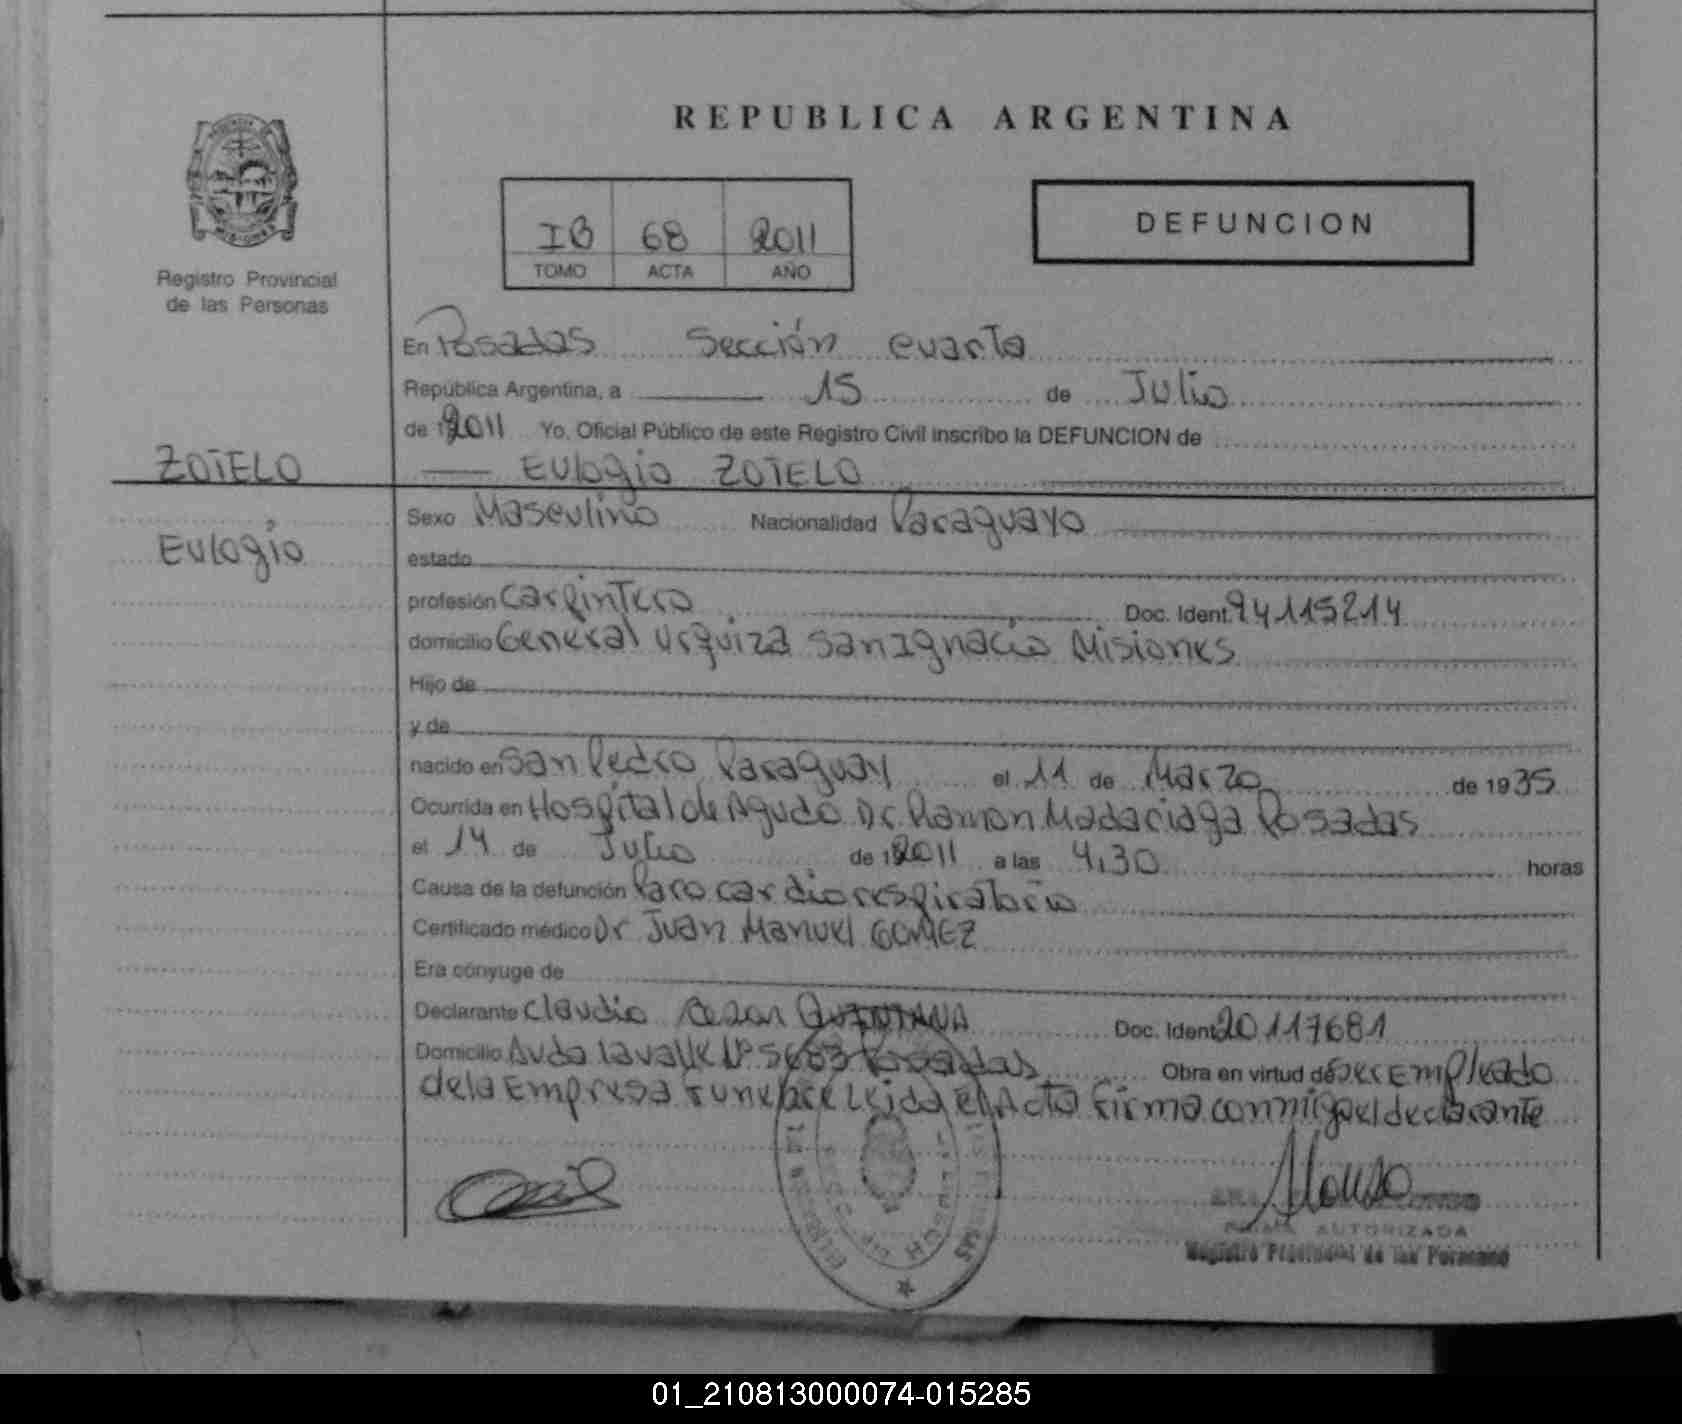 REPUBLICA ARGENTINA
IB 68 2011
TOMO ACTA AÑO
DEFUNCION
Registro Provincial
de las Personas
ZOTELO
Eulogio
En Posadas Sección cuarta
República Argentina, a 15 de Julio
de 2011 Yo, Oficial Público de este Registro Civil inscribo la DEFUNCION de
Eulogio ZOTELO
Sexo Masculino Nacionalidad Paraguayo
estado
profesión Carpintero Doc. Ident. 94115214
domicilio General Urquiza San Ignacio Misiones
Hijo de
y de
nacido en San Pedro Paraguay el 11 de Marzo de 1935
Ocurrida en Hospital de Agudo Dr. Ramon Madariaga Posadas
el 14 de Julio de 2011 a las 4,30 horas
Causa de la defunción Paro cardiorespiratorio
Certificado médico Dr Juan Manuel GOMEZ
Era cónyuge de
Declarante Claudio Cezar QUINTANA Doc. Ident 20117681
Domicilio Avda Lavalle Nº 5683 Posadas Obra en virtud de ser Empleado
de la Empresa Funebre Leida el Acta Firma conmigo el declarante
FIRMA AUTORIZADA
Registro Provincial de las Personas
01_210813000074-015285